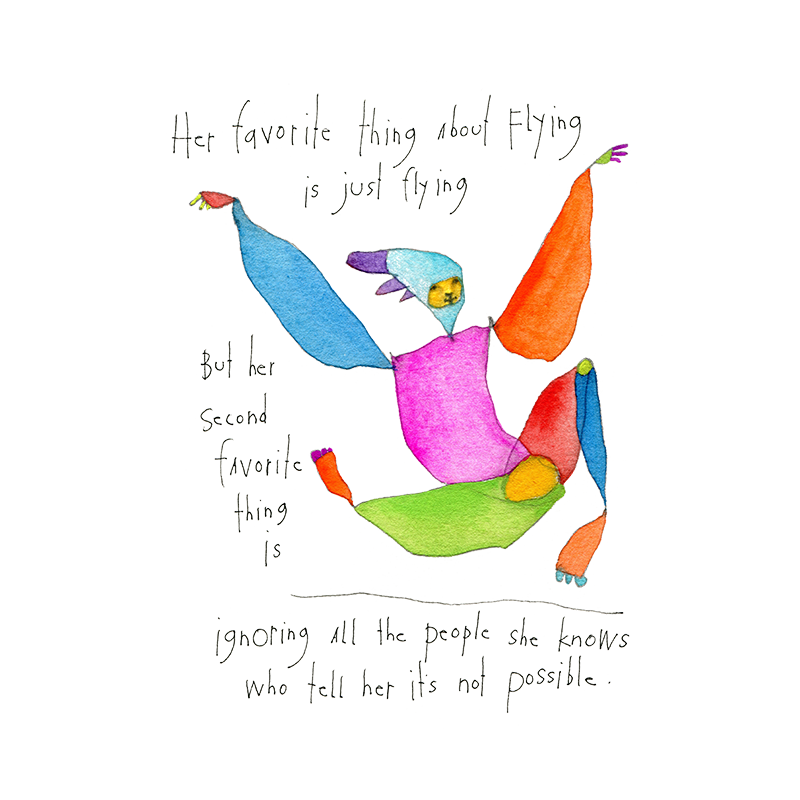 Her favorite thing about Flying
is just flying
But her
second
favorite
thing
is
ignoring all the people she knows
who tell her it's not possible.